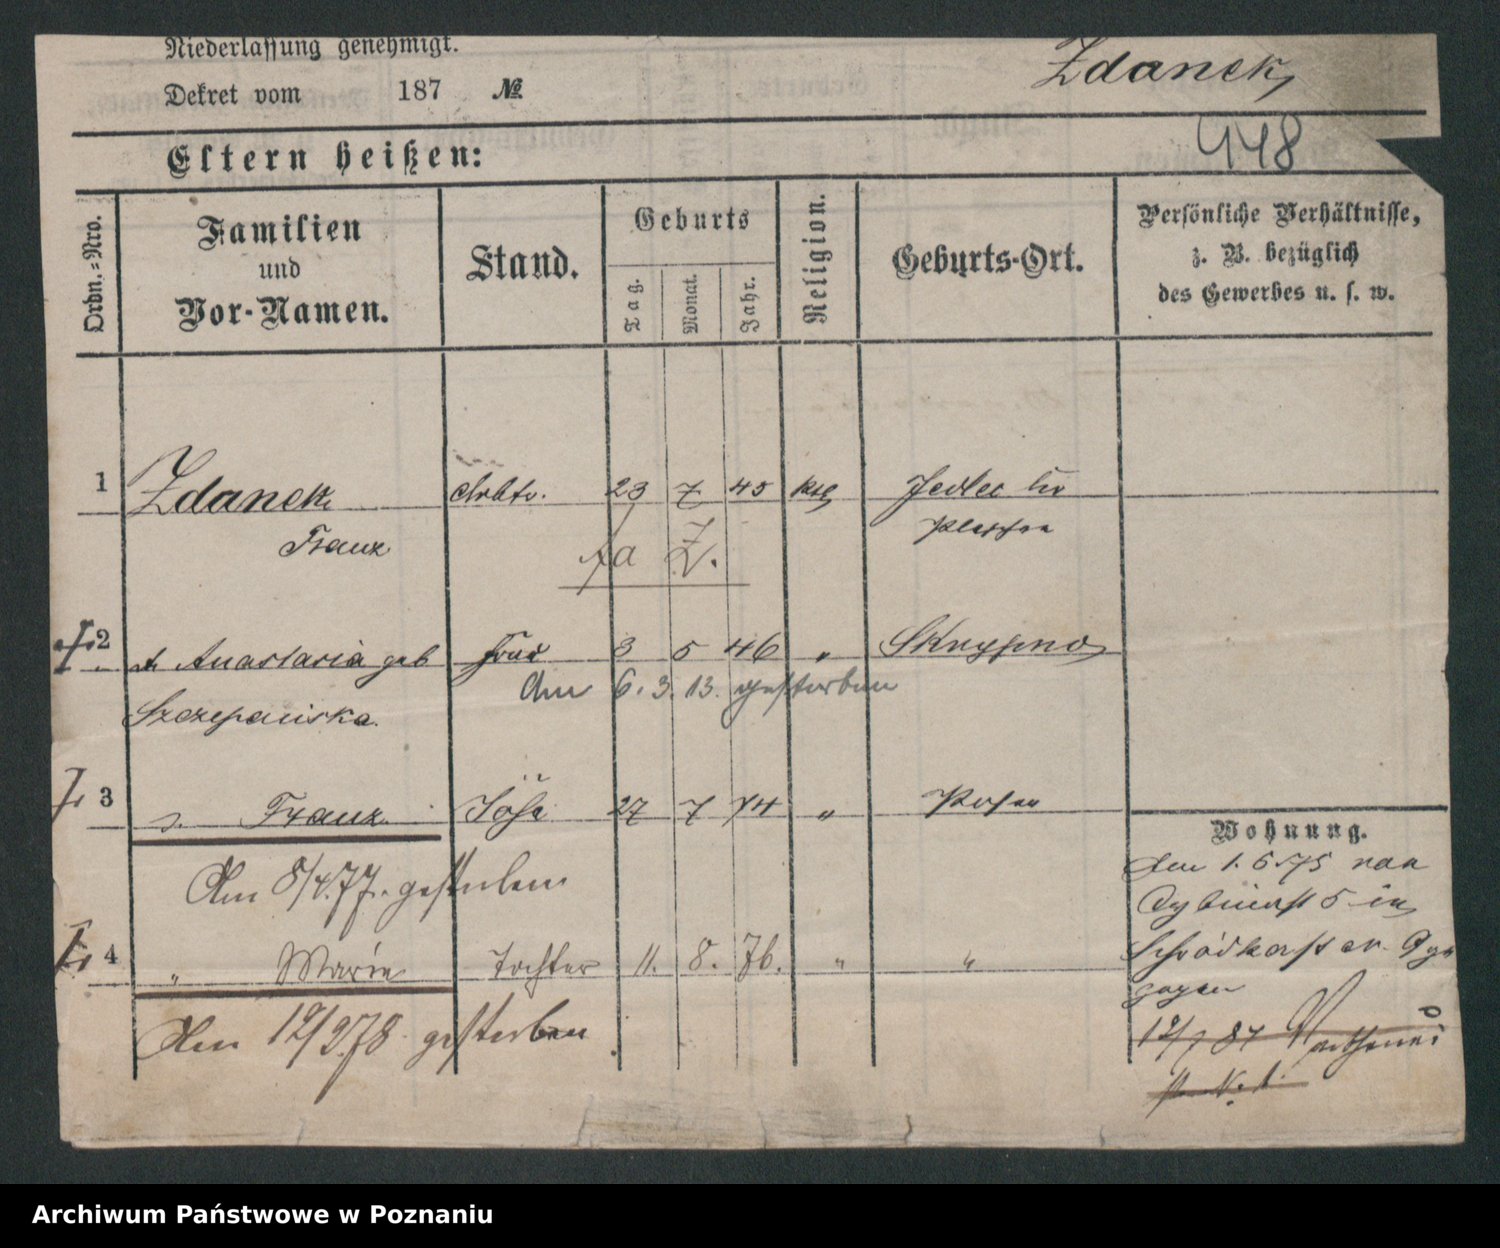 Niederlassung genehmigt.
Dekret vom 187 №
Zdanek
448
Eltern heißen:
Ordn.=Nro.
Familien
und
Vor-Namen.
Stand.
Geburts
Tag.
Monat.
Jahr.
Religion.
Geburts-Ort.
Persönliche Verhältnisse,
z. B. bezüglich
des Gewerbes u. s. w.
1 Zdanek Arbtr. 23 7 45 kth Jedlec Kr
Franz Pleschen
2 Anastasia geb Frau 3 5 46 " Sknypno
Am 6. 3. 13. gestorben
Szczepaniska.
3 s. Franz Sohn 27 7 74 " Posen
Am 8/4.77. gestorben
4 " Marie Tochter 11. 8. 76. " "
Am 12/2.78. gestorben
Wohnung.
Am 1. 6 75 von
5 in
gezogen
12/7 87